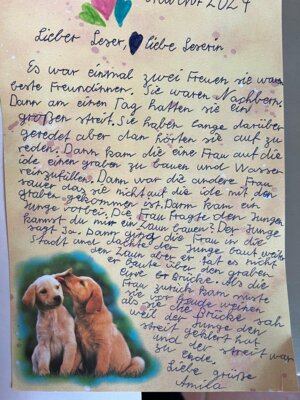 2024
Lieber Leser, liebe Leserin
Es war einmal zwei Freuen sie waren
beste Freundinnen. Sie waren Nachbern.
Dann am einen Tag hatten sie ein
großen streit. Sie haben lange darüber
geredet aber dan hörten sie auf zu
reden. Dann kam die eine Frau auf die
idee einen graben zu bauen und Wasser
reinzufüllen. Dann war die andere Frau
sauer das sie nicht auf die idee mit den
graben gekommen ist. Dann kam ein
Junge vorbei. Die Frau fragte den Jungen
kannst du mir ein Zaun bauen? Der Junge
sagt Ja. Dann ging die Frau in die
Stadt und dachte der Junge baut weiter
den Zaun aber er tat es nicht
er baute über den graben
eine Brücke. Als die
Frau zurück kam muste
sie vor freude weinen
als sie die Brücke sah
weil der Junge den
streit geklert hat
und der streit war
zu ende.
Liebe grüße
Amila